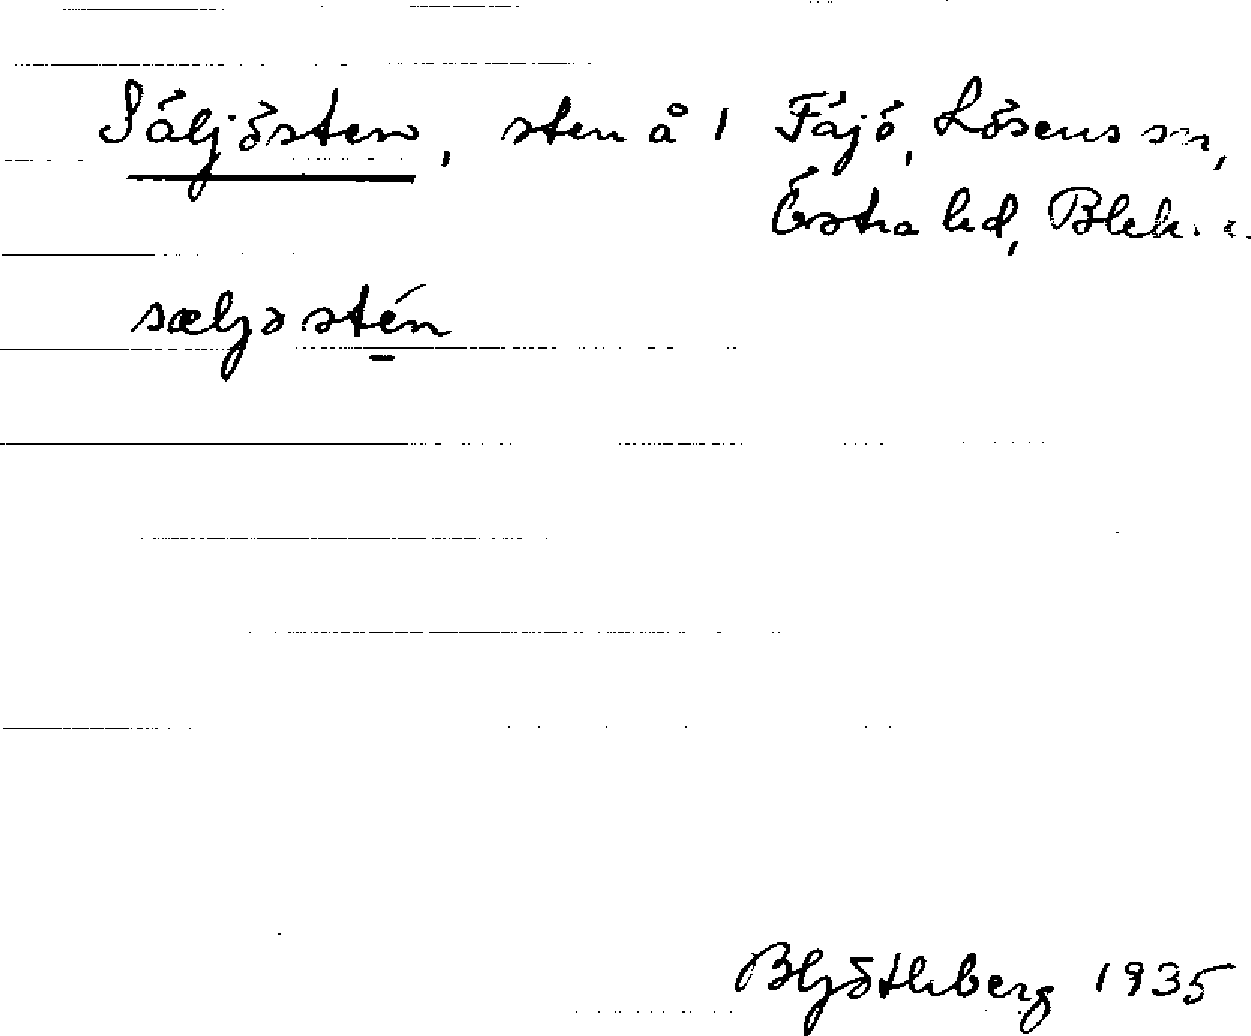 Säljösten, sten å 1 Fäjö, Lösens sn,
Östra hd, Blek. l.
sæljəstén
BHjÖthberg 1935